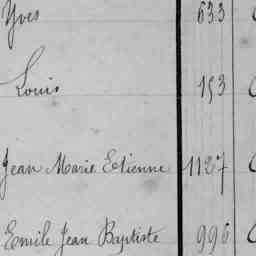 Yves 633
Louis 153
Jean Marie Etienne 1127
Emile Jean Baptiste 996